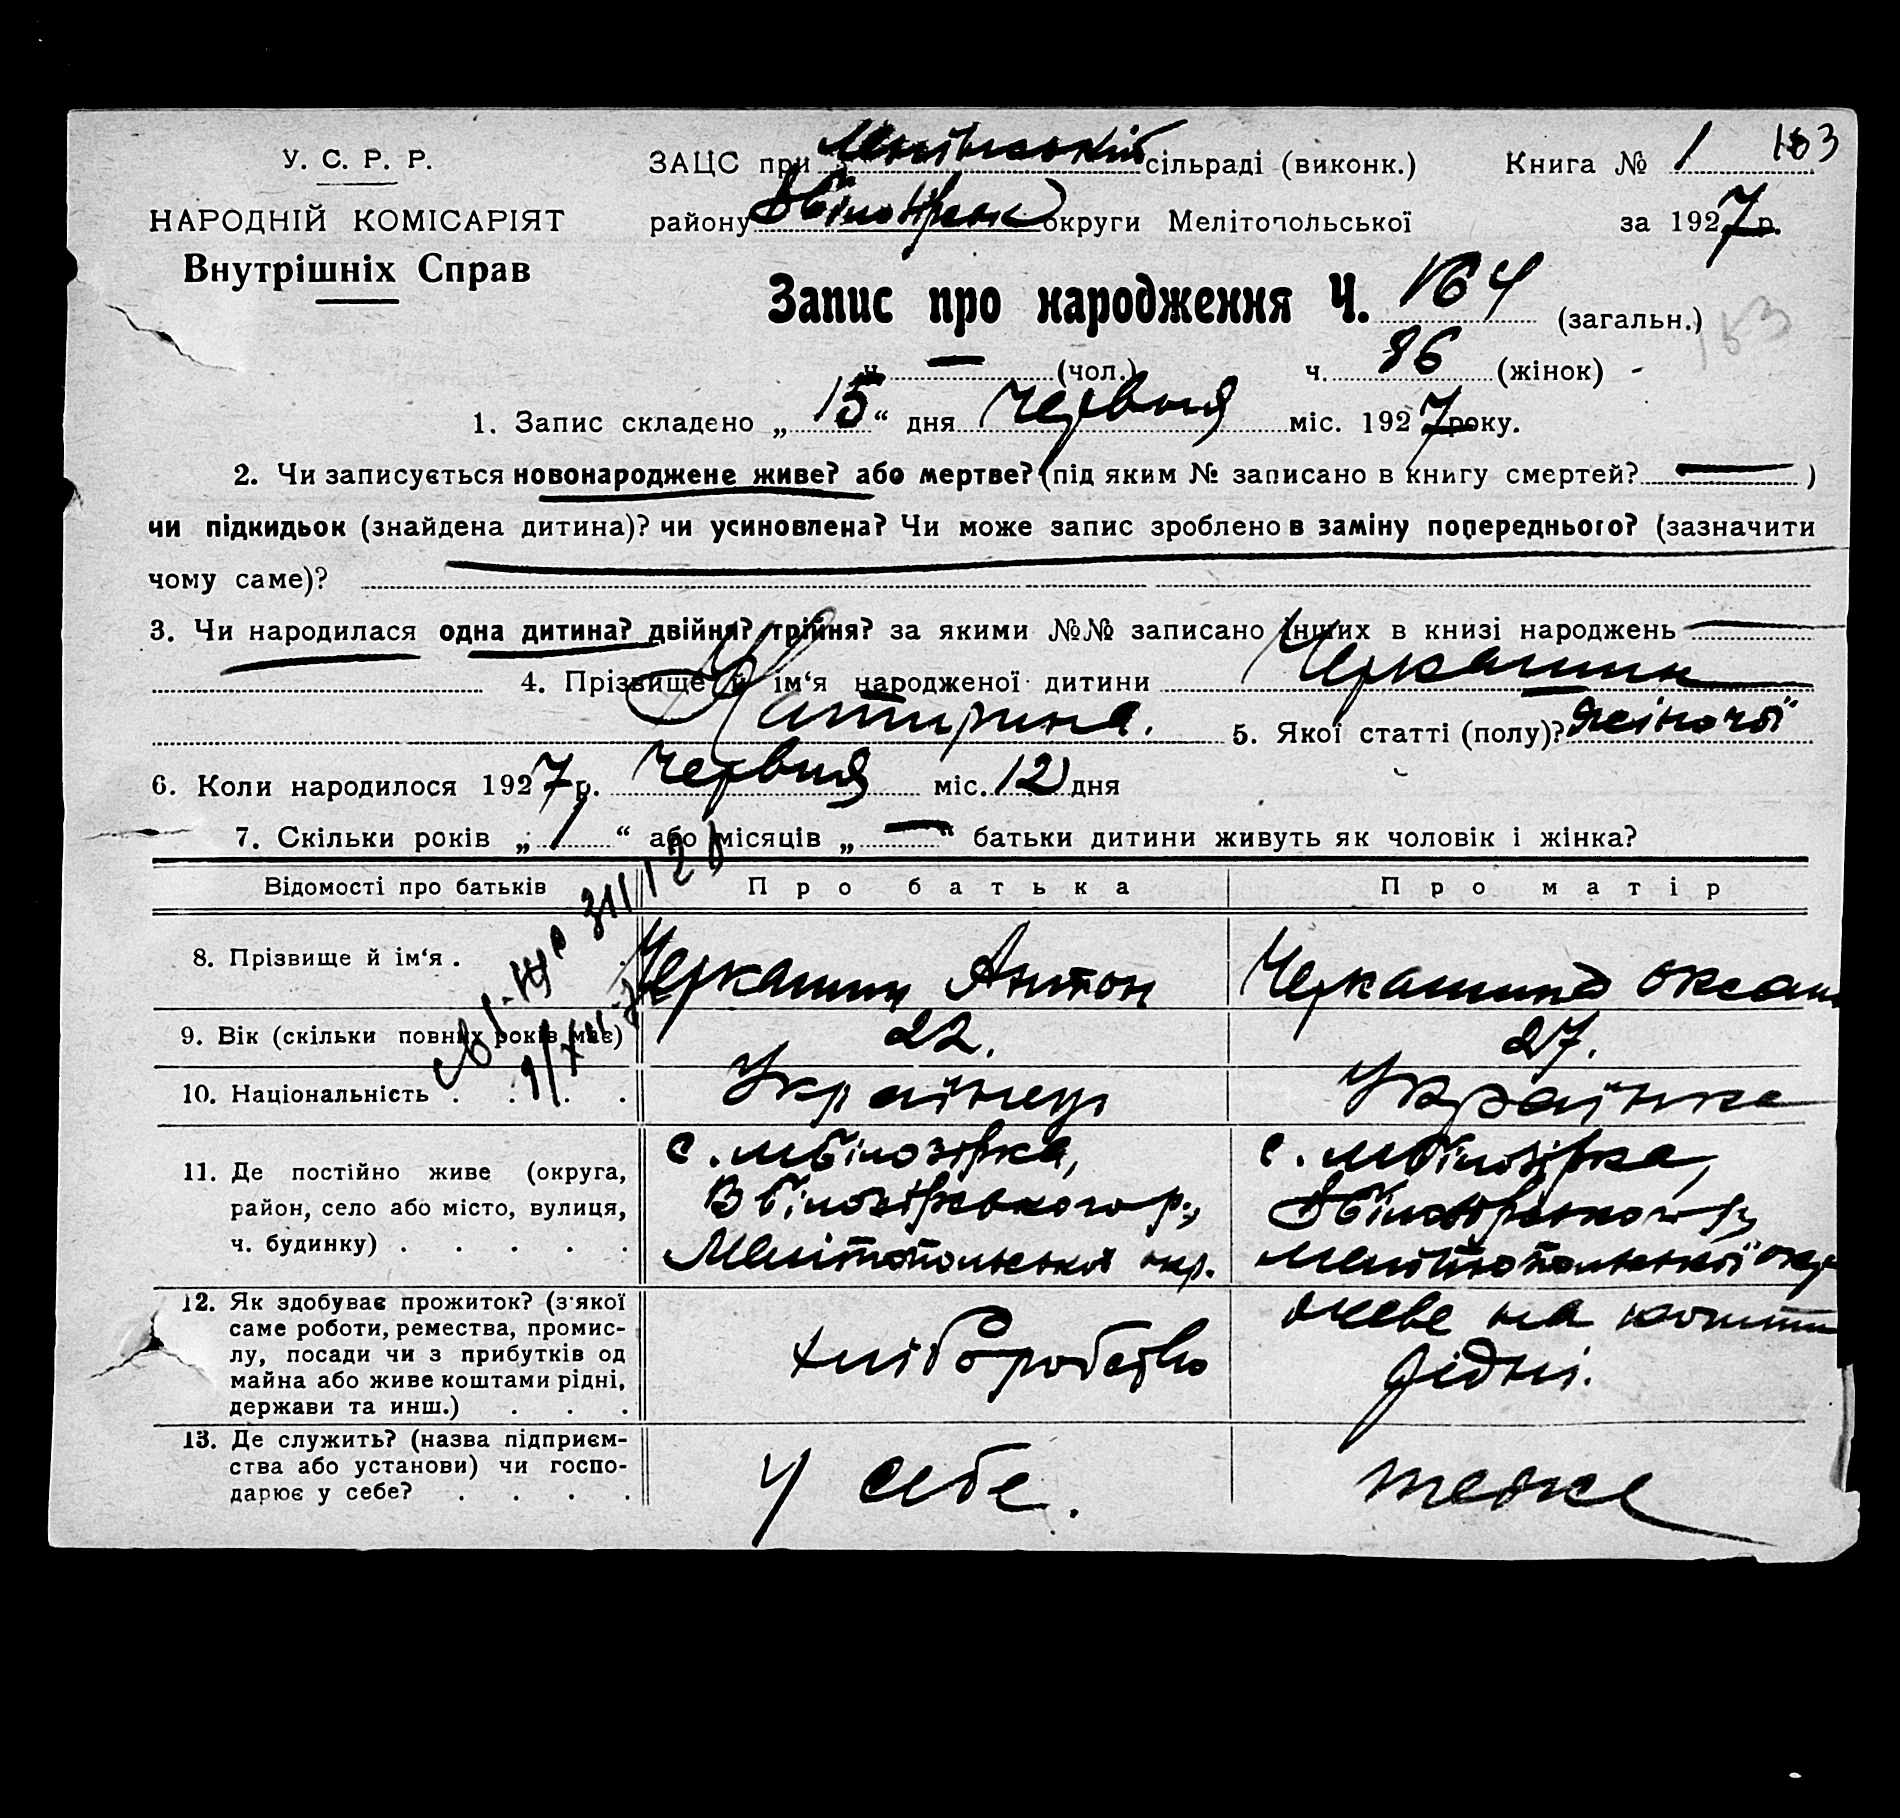 У. С. Р. Р.
НАРОДНІЙ КОМІСАРІЯТ
Внутрішніх Справ
ЗАЦС при сільраді (виконк.) Книга № 1 163
району округи Мелітопольської за 1927 р.
Запис про народження Ч. 164 (загальн.) 153
ч. — (чол.) ч. 86 (жінок)
1. Запис складено „ 15 “ дня Червня міс. 1927 року.
2. Чи записується новонароджене живе? або мертве? (під яким № записано в книгу смертей? — )
чи підкидьок (знайдена дитина)? чи усиновлена? Чи може запис зроблено в заміну попереднього? (зазначити
чому саме)?
3. Чи народилася одна дитина? двійня? трійня? за якими №№ записано інших в книзі народжень —
4. Прізвище й ім‘я народженої дитини Черкашин
Катирина. 5. Якої статті (полу)? жіночої
6. Коли народилося 1927 р. Червня міс. 12 дня
7. Скільки років „ 1 “ або місяців „ — “ батьки дитини живуть як чоловік і жінка?
Відомості про батьків Про батька Про матір
8. Прізвище й ім‘я . Черкашин Антон Черкашина Оксан
9. Вік (скільки повних років має) 22. 27.
10. Національність . . . . Українець Українка
11. Де постійно живе (округа,
район, село або місто, вулиця,
ч. будинку) . . . . .
с. мБілозірка,
ВБілозірського р.,
Мелітопольської окр.
с. мБілозірка,
ВБілозірського р,
Мелітопольської окр
12. Як здобуває прожиток? (з якої
саме роботи, ремества, промис-
лу, посади чи з прибутків од
майна або живе коштами рідні,
держави та инш.) . . .
хліборобство
живе на кошти
рідні.
13. Де служить? (назва підприєм-
ства або установи) чи госпо-
дарює у себе? . . . .
У себе.
теж